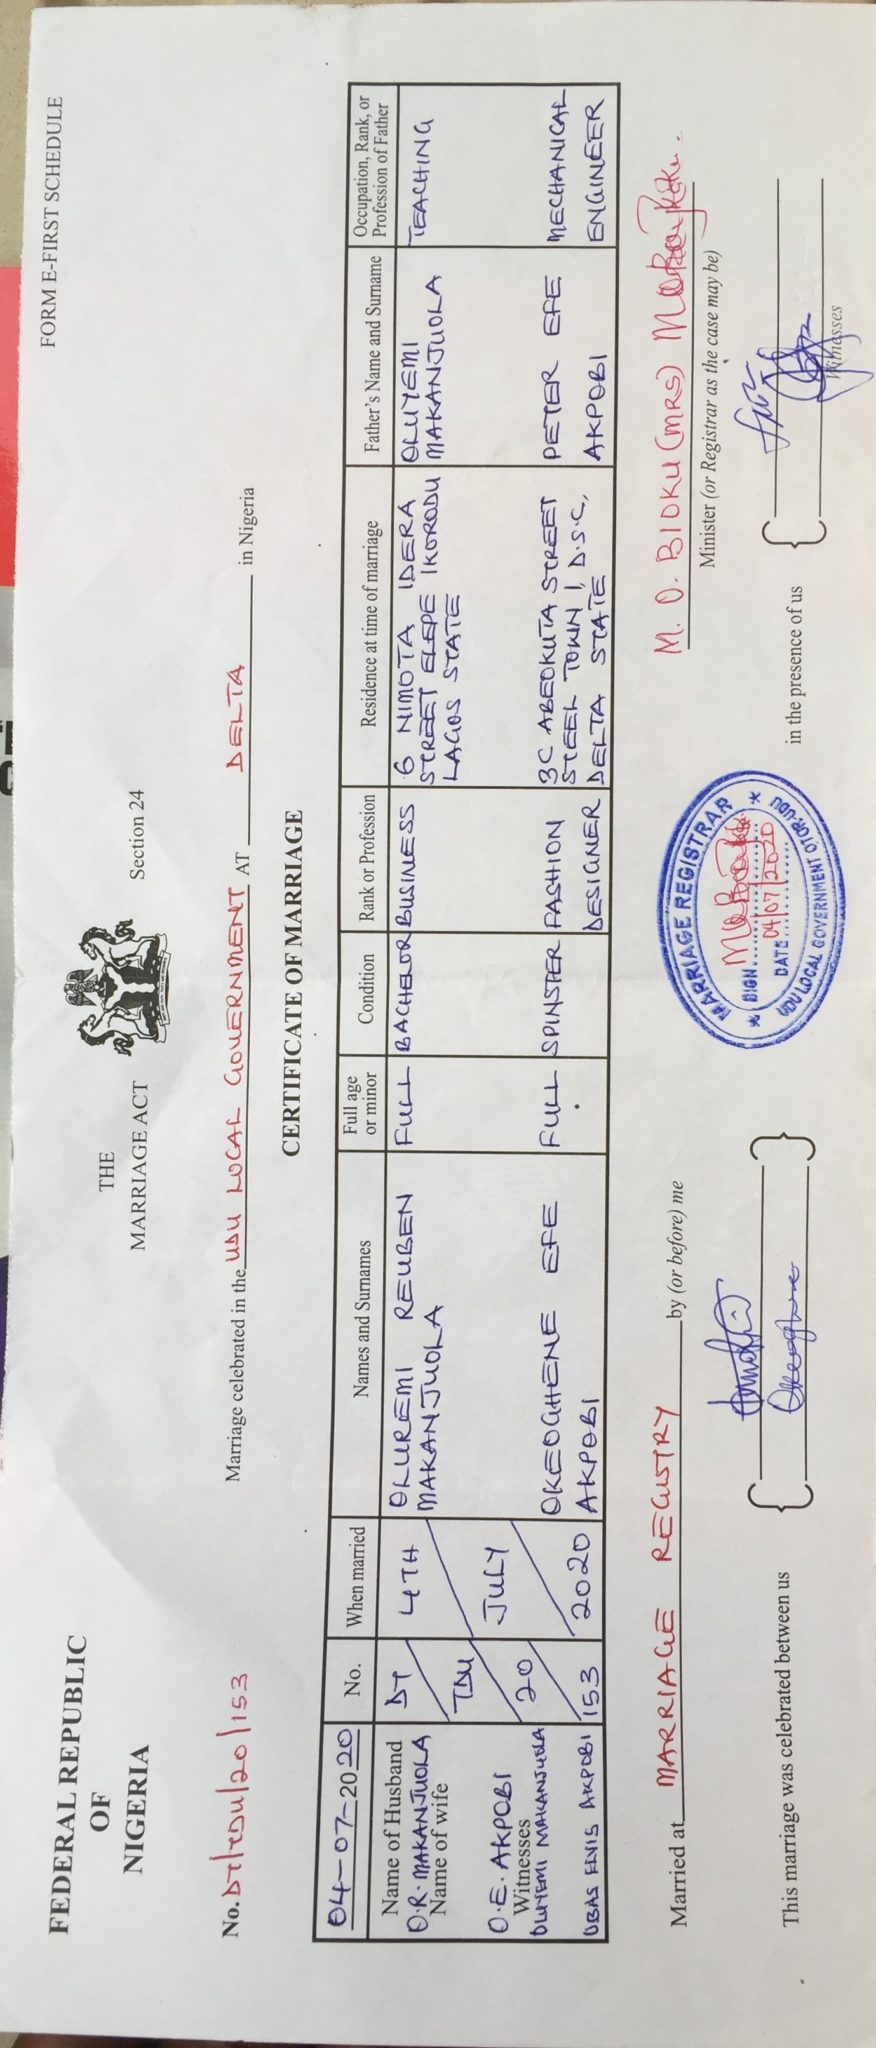 FORM E-FIRST SCHEDULE
FEDERAL REPUBLIC
OF
NIGERIA
THE
MARRIAGE ACT
Section 24
No. DT/TDU/20/153
Marriage celebrated in the UDU LOCAL GOVERNMENT AT DELTA in Nigeria
CERTIFICATE OF MARRIAGE
04-07-2020
No.
When married
Names and Surnames
Full age
or minor
Condition
Rank or Profession
Residence at time of marriage
Father's Name and Surname
Occupation, Rank, or
Profession of Father
Name of Husband
O.R. MAKANJUOLA
Name of wife
O.E. AKPOBI
Witnesses
OLUYEMI MAKANJUOLA
OBAS ELVIS AKPOBI
DT/
TDU/
20/
153
4TH/
JULY/
2020
OLUREMI REUBEN
MAKANJUOLA
FULL
BACHELOR
BUSINESS
6 NIMOTA IDERA
STREET ELEPE IKORODU
LAGOS STATE
OLUYEMI
MAKANJUOLA
TEACHING
OKEOGHENE EFE
AKPOBI
FULL
SPINSTER
FASHION
DESIGNER
3C ABEOKUTA STREET
STEEL TOWN 1, D.S.C,
DELTA STATE
PETER EFE
AKPOBI
MECHANICAL
ENGINEER
Married at MARRIAGE REGISTRY by (or before) me M. O. BIOKU (MRS)
Minister (or Registrar as the case may be)
This marriage was celebrated between us
Okeoghene
in the presence of us
Witnesses
MARRIAGE REGISTRAR
SIGN
DATE 04/07/2020
UDU LOCAL GOVERNMENT OTOR-UDU